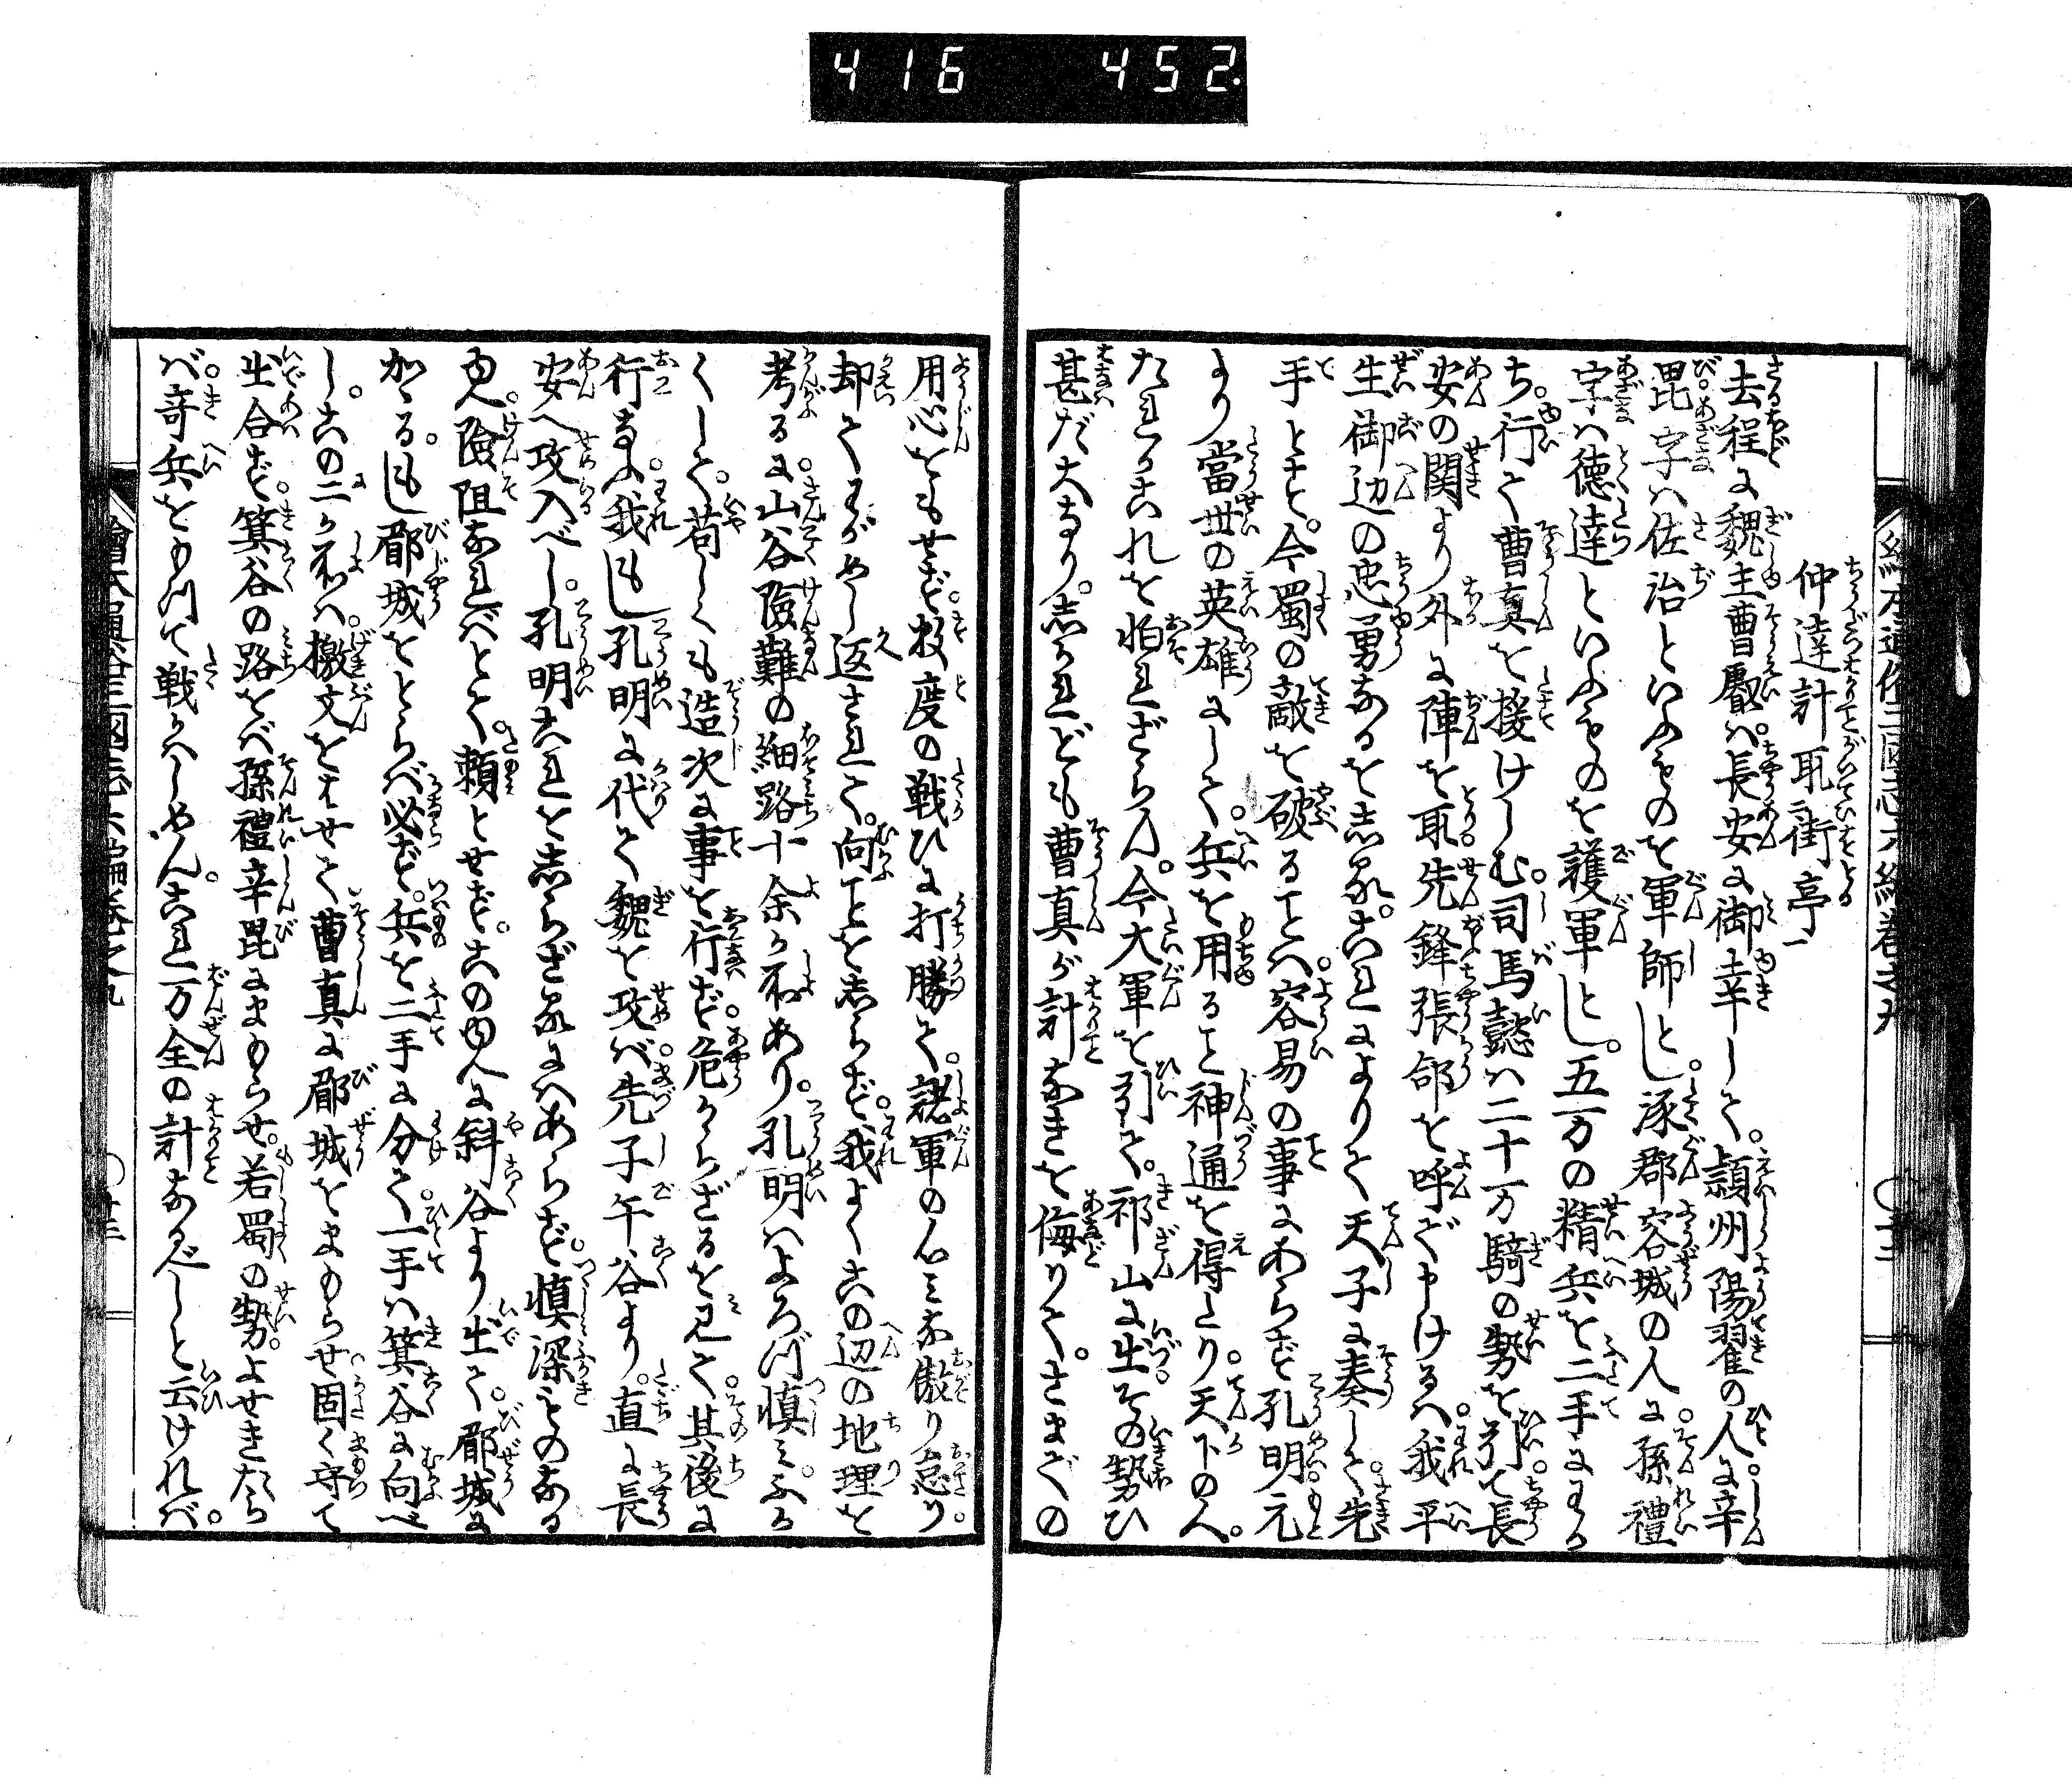 416 452
仲達計取街亭
去程に魏主曹叡ハ。長安に御幸して。潁州陽翟の人に辛
毘。字ハ佐治といふものを軍師とし。涿郡容城の人に。孫禮
字ハ徳達といふものを護軍とし。五万の精兵を二手にわか
ち。行て曹真を援けしむ。司馬懿ハ二十万騎の勢を引て。長
安の関より外に陣を取。先鋒張郃を呼で申けるハ。我平
生御辺の忠勇なるを志る。これによりて天子に奏して。先
手とす。今蜀の敵を破ることハ。容易の事にあらず。孔明元
より當世の英雄にして。兵を用ること神通を得たり。天下の人。
たれかこれを怕れざらん。今大軍を引て。祁山に出。その勢ひ
甚だ大なり。志かれども曹真が計なきを侮りて。さまでの
用心をもせず。数度の戦ひに打勝て。諸軍のんミな傲り怠り。
却てまがやし返されて。向ことを志らず。我よくこの辺の地理を
考るに。山谷險難の細路十余ケ所あり。孔明ハよろづ慎ミふか
くして。苟しくも造次に事を行ず。危からざるを見て。其後に
行なふ。我もし孔明に代て魏を攻バ。先子午谷より。直に長
安へ攻入べし。孔明これを志らざるにハあらず。慎深ものなる
ゆへ。險阻なれバとて。頼とせず。このゆへに斜谷より出て。郿城に
かゝる。もし郿城をとらバ必ず。兵を二手に分て。一手ハ箕谷に向べ
し。この二ケ所ハ。檄文をはせて曹真に郿城をまもらせ。固く守て
出合ず。箕谷の路をバ孫禮辛毘にまもらせ。若蜀の勢。よせきたら
バ。奇兵をもつて戦かハしめん。これ万全の計なるべしと云けれバ。